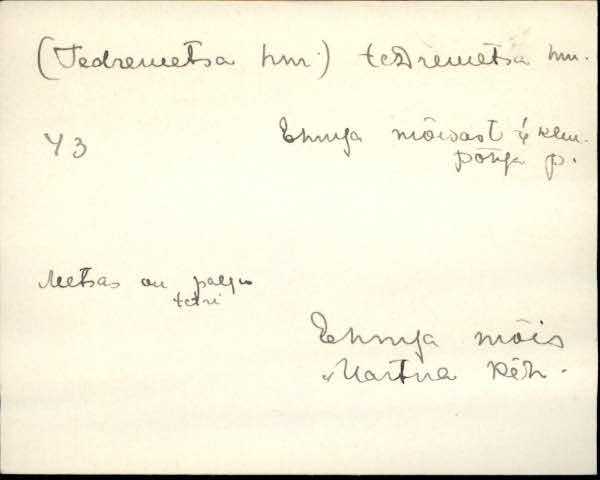 (Tedremetsa hm.) teDremetsa hm.
43 Ehmja mõisast 4 klm.
põhja p.
Metsas on palju
tetri
Ehmja mõis
Martna Kih.